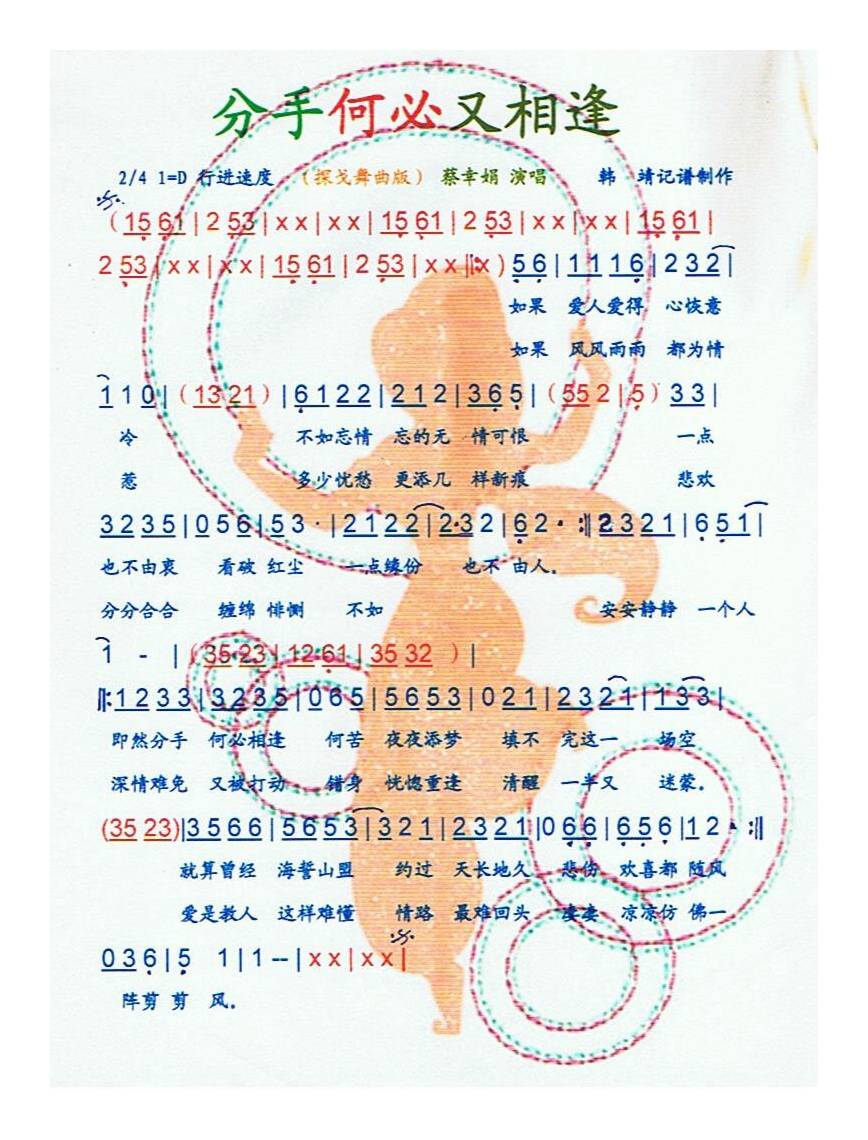 分手何必又相逢
2/4 1=D 行进速度 （探戈舞曲版） 蔡幸娟 演唱 韩 靖记谱制作
（15 61 | 2 53 | x x | x x | 15 61 | 2 53 | x x | x x | 15 61 |
2 53 | x x | x x | 15 61 | 2 53 | x x ‖: x ) 5 6 | 1 1 1 6 | 2 3 2 |
如果 爱人爱得 心恢意
如果 风风雨雨 都为情
1 1 0 |（13 21）| 6 1 2 2 | 2 1 2 | 3 6 5 |（55 2 | 5）3 3 |
冷 不如忘情 忘的无 情可恨 一点
惹 多少忧愁 更添几 样新痕 悲欢
3 2 3 5 | 0 5 6 | 5 3 · | 2 1 2 2 | 2·3 2 | 6 2 · :‖ 2 3 2 1 | 6 5 1 |
也不由衷 看破 红尘 一点缘份 也不 由人。
分分合合 缠绵 悱恻 不如 安安静静 一个人
1 - |（35 23 | 12 61 | 35 32 ）|
‖: 1 2 3 3 | 3 2 3 5 | 0 6 5 | 5 6 5 3 | 0 2 1 | 2 3 2 1 | 1 3 3 |
即然分手 何必相逢 何苦 夜夜添梦 填不 完这一 场空
深情难免 又被打动 错身 恍惚重逢 清醒 一半又 迷蒙。
(35 23)| 3 5 6 6 | 5 6 5 3 | 3 2 1 | 2 3 2 1 | 0 6 6 | 6 5 6 | 1 2 · :‖
就算曾经 海誓山盟 约过 天长地久 悲伤 欢喜都 随风
爱是教人 这样难懂 情路 最难回头 凄凄 凉凉仿 佛一
0 3 6 | 5 1 | 1 -- | x x | x x |
阵剪 剪 风。